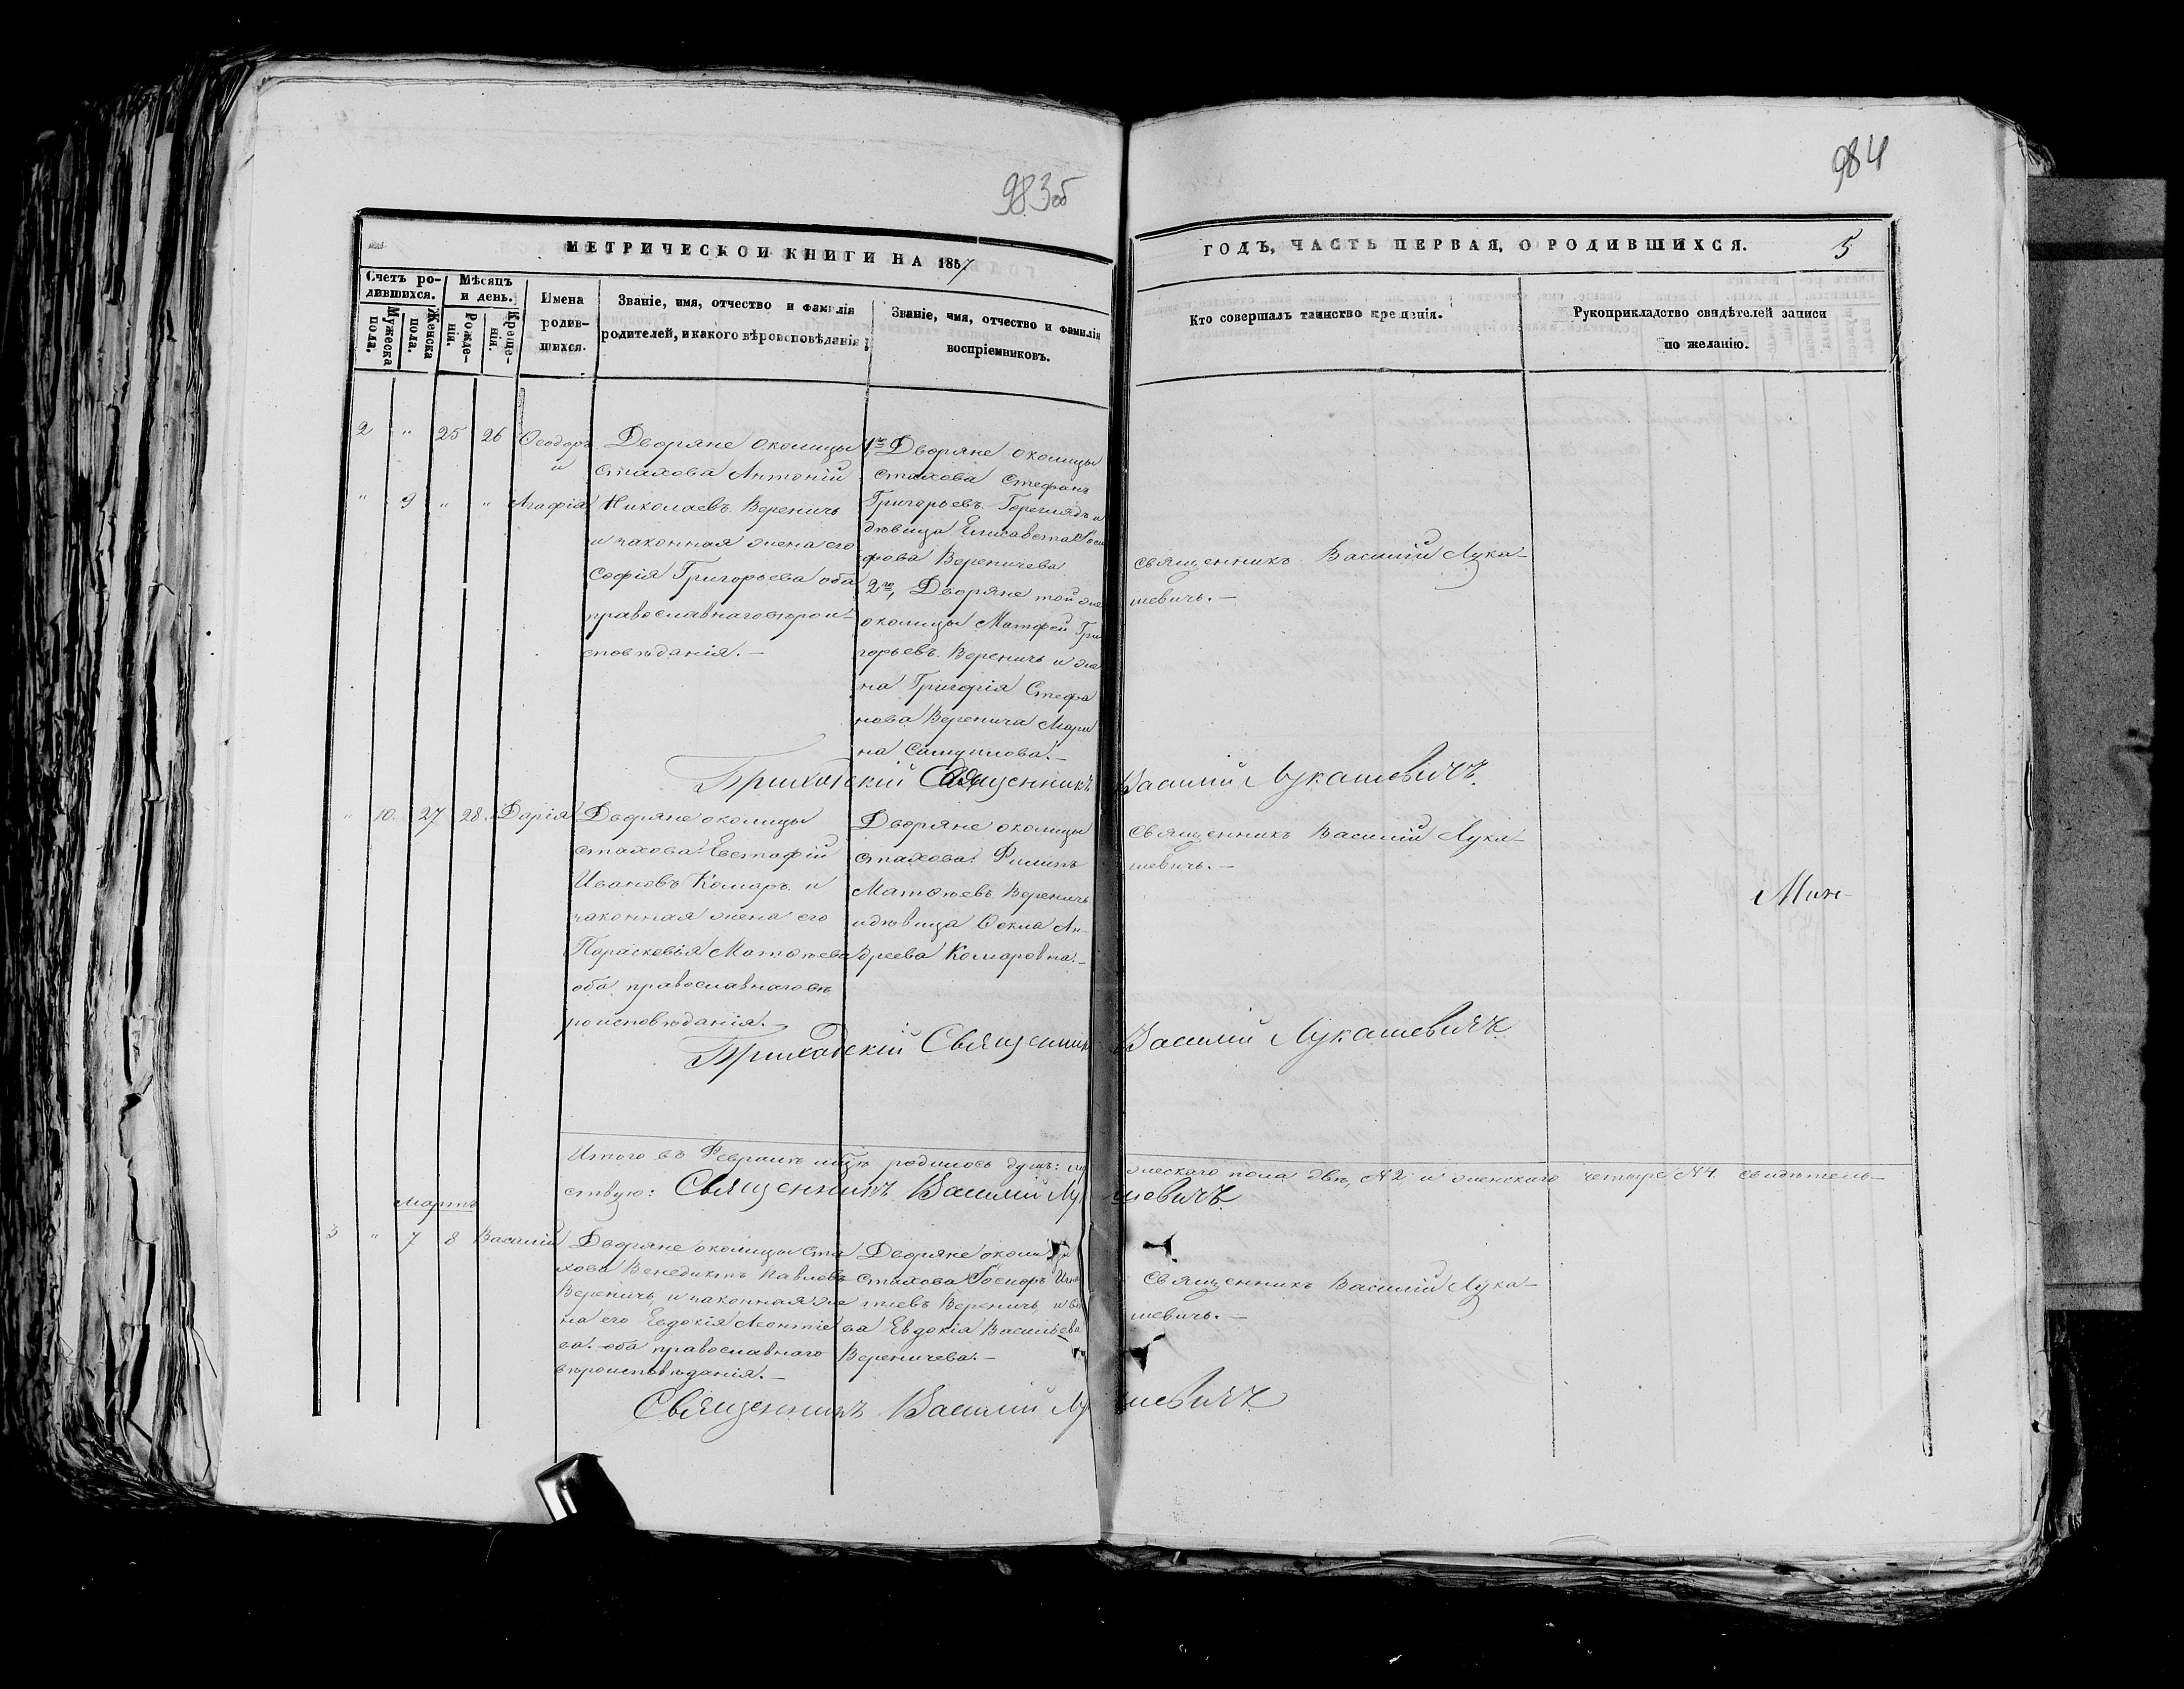 983об
984
МЕТРИЧЕСКОЙ КНИГИ НА 1857
ГОДЪ, ЧАСТЬ ПЕРВАЯ, О РОДИВШИХСЯ.
5
Счетъ ро-
дившихся.
Мѣсяцъ
и день.
Мужеска
пола.
Женска
пола.
Рожде-
нія.
Креще-
нія.
Имена
родив-
шихся.
Званіе, имя, отчество и фамилія
родителей, и какого вѣроисповѣданія
Званіе, имя, отчество и фамилія
воспріемниковъ.
Кто совершалъ таинство крещенія.
Рукоприкладство свидѣтелей записи
по желанію.
2 " 25 26 Ѳеодоръ
и
" 9 " " Агафія
Дворяне околицы
Стахова Антоній
Николаевъ Вереничь
и законная жена его
Софія Григорьева оба
православнаго вѣрои-
сповѣданія. —
1го Дворяне околицы
Стахова Стефанъ
Григорьевъ Горегляд и
дѣвица Елисавета Іоси
фова Вереничева
2го, Дворяне той же
околицы Матфей Гри
горьевъ Вереничь и же
на Григорія Стефа
нова Веренича Мари
на Самуилова. —
священникъ Василій Лука-
шевичь. —
Приходскій Священникъ Василій Лукашевичъ
" 10. 27 28. Дарія
Дворяне околицы
Стахова Евстафій
Ивановъ Комаръ и
законная жена его
Параскевія Матѳѣева
оба православнаго вѣ
роисповѣданія. —
Дворяне околицы
Стахова Филипъ
Матѳѣевъ Вереничь
и дѣвица Ѳекла Ан-
дреева Комаровна. —
священникъ Василій Лука-
шевичь. —
Мин-
Приходскій Священник Василій Лукашевичъ
Итого въ Февралѣ мцѣ родилось душъ: му жескаго пола двѣ, №2 и женскаго четыре №4. свидѣтель-
ствую: Священникъ Василій Лу шевичъ
Мартъ
3 " 7 8 Василій
Дворяне околицы Ста
хова Венедиктъ Павловъ
Вереничь и законная же
на его Евдокія Леонтіе
ва. оба православнаго
вѣроисповѣданія. —
Дворяне околицы
Стахова Ѳеодоръ Игна
тіевъ Вереничь и
Евдокія Васильева
Вереничева. —
священникъ Василій Лука-
шевичь. —
Священникъ Василій Лу шевичъ